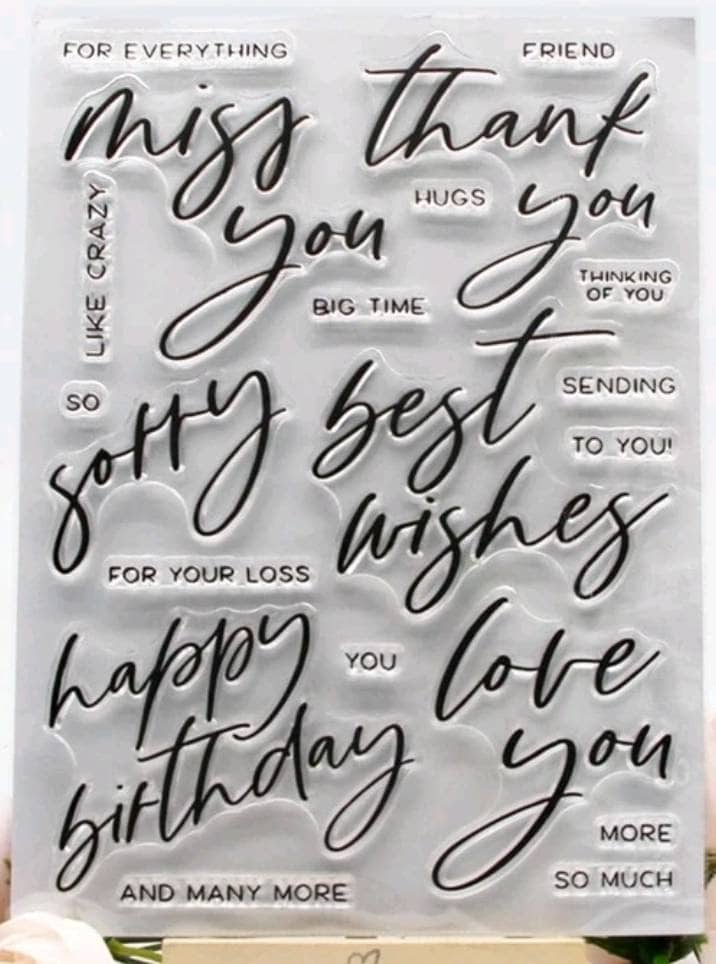 FOR EVERYTHING
FRIEND
miss
thank
you
HUGS
you
LIKE CRAZY
THINKING
OF YOU
BIG TIME
SO
sorry
best
SENDING
TO YOU!
wishes
FOR YOUR LOSS
happy
YOU
love
birthday
you
MORE
SO MUCH
AND MANY MORE